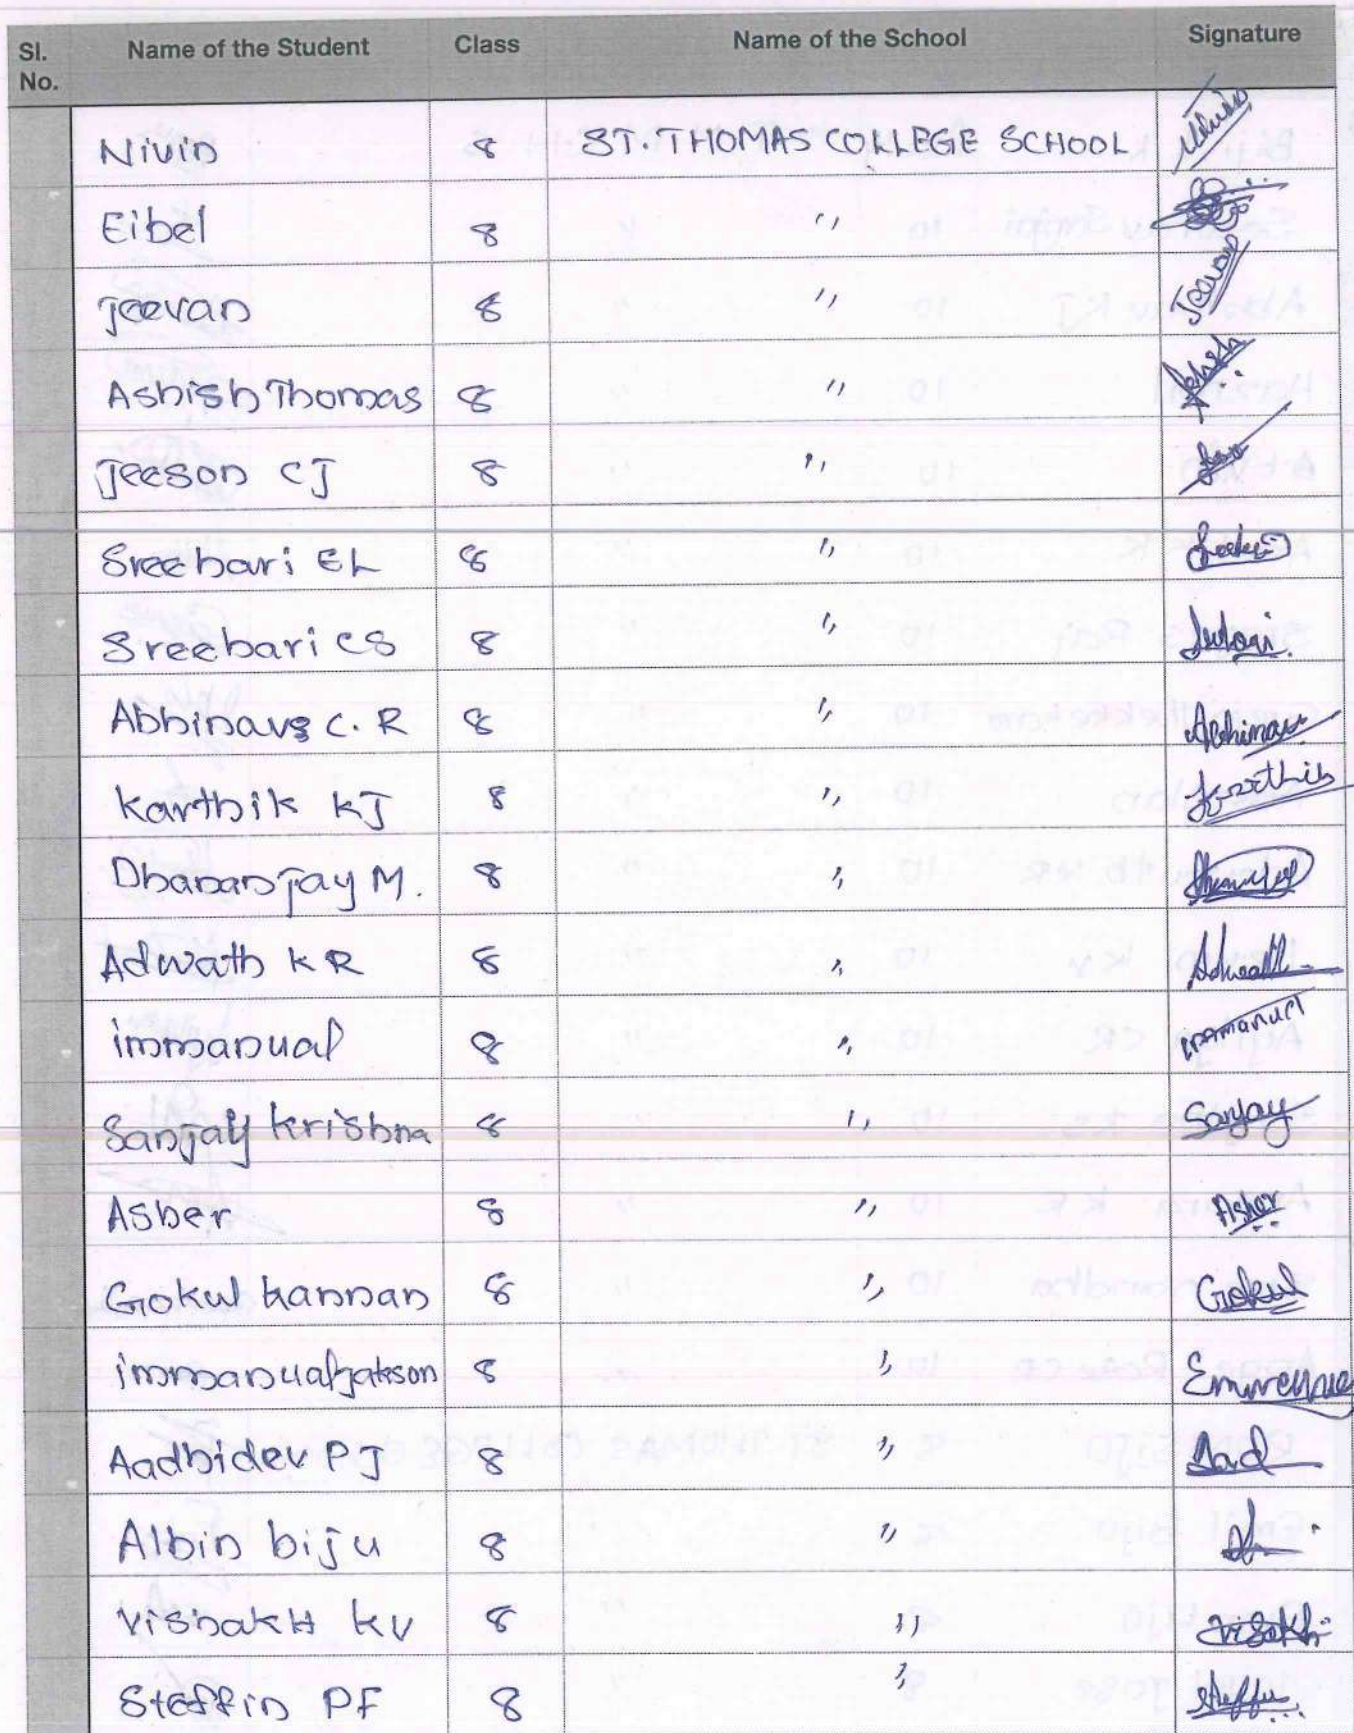 Sl. No. Name of the Student Class Name of the School Signature
Nivin 8 ST. THOMAS COLLEGE SCHOOL
Eibel 8 ,,
Jeevan 8 ,, Jeevan
Ashish Thomas 8 ,, Ashish
Jeeson CJ 8 ,,
Sreehari EL 8 ,,
Sreehari CS 8 ,,
Abhinav C. R 8 ,, Abhinav
Karthik KJ 8 ,, Karthik
Dhananjay M. 8 ,,
Adwath KR 8 ,, Adwath
immanual 8 ,, immanuel
Sanjay Krishna 8 ,, Sanjay
Asher 8 ,, Asher
Gokul kannan 8 ,, Gokul
immanual jakson 8 ,,
Aadhidev PJ 8 ,,
Albin biju 8 ,,
VishakH KV 8 ,,
Steffin PF 8 ,,